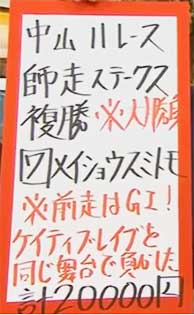 中山11レース
師走ステークス
複勝 ※人順
囗メイショウスミトモ
※前走はGⅠ!
ケイティブレイブと
同じ舞台で負けた
計20000円